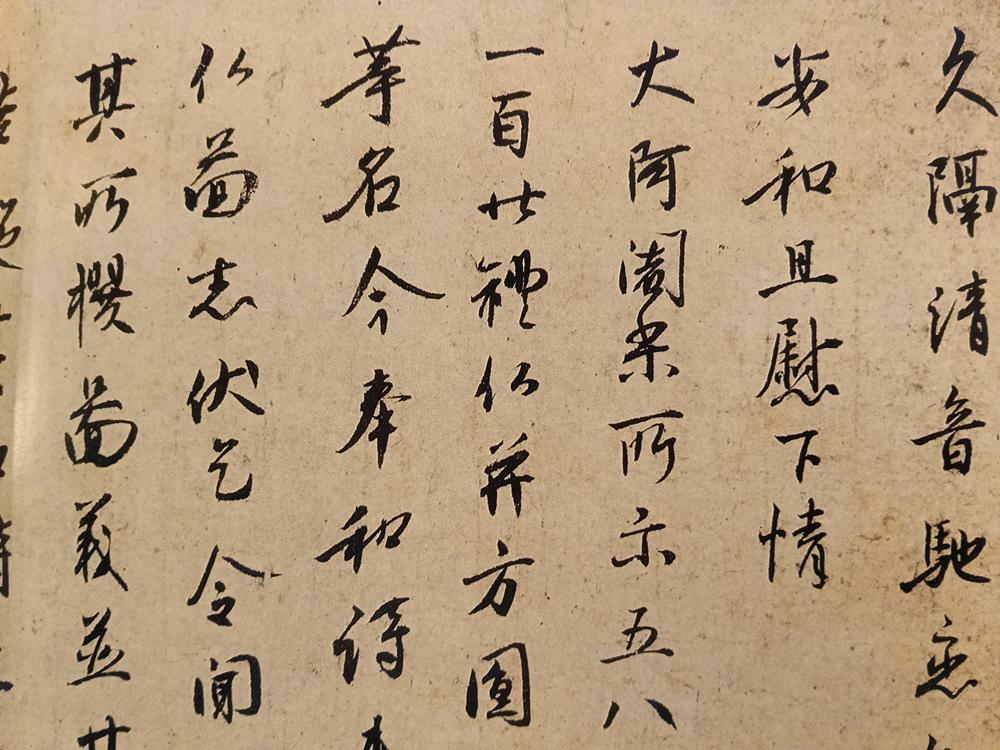 久隔清音馳恋
安和且慰下情
大阿闍梨所示五八
一百廿禮仏并方圓
等名今奉和詩
仏圖者伏乞令聞
其所撰圖義並其